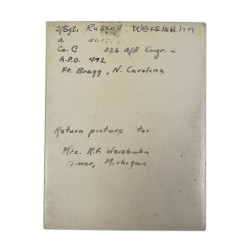 S/Sgt. Russell Weishuhn
Co. C 236 A/B Engr.
A.P.O. 472
Ft. Bragg, N. Carolina
Return picture to:
Mrs. R.F. Weishuhn
Omer, Michigan